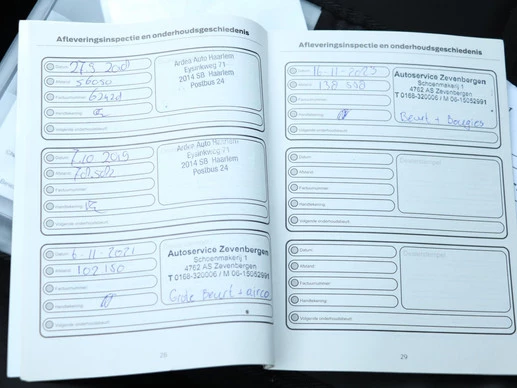 Afleveringsinspectie en onderhoudsgeschiedenis
Datum 27.9 2018
Afstand 56050
Factuurnummer
Handtekening
Volgende onderhoudsbeurt
Arden Auto Haarlem
Eysinkweg 71
2014 SB Haarlem
Postbus 24
Datum 7.10 2019
Afstand
Factuurnummer
Handtekening
Volgende onderhoudsbeurt
Arden Auto Haarlem
Eysinkweg 71
2014 SB Haarlem
Postbus 24
Datum 6-11-2021
Afstand 102180
Factuurnummer
Handtekening
Volgende onderhoudsbeurt
Autoservice Zevenbergen
Schoenmakerij 1
4762 AS Zevenbergen
T 0168-320006 / M 06-15052991
Grote Beurt + airco
28
Afleveringsinspectie en onderhoudsgeschiedenis
Datum 16-11-2023
Afstand 138 598
Factuurnummer
Handtekening
Volgende onderhoudsbeurt
Autoservice Zevenbergen
Schoenmakerij 1
4762 AS Zevenbergen
T 0168-320006 / M 06-15052991
Beurt + Bougies
Datum
Afstand
Factuurnummer
Handtekening
Volgende onderhoudsbeurt
Dealerstempel
Datum
Afstand
Factuurnummer
Handtekening
Volgende onderhoudsbeurt
Dealerstempel
29